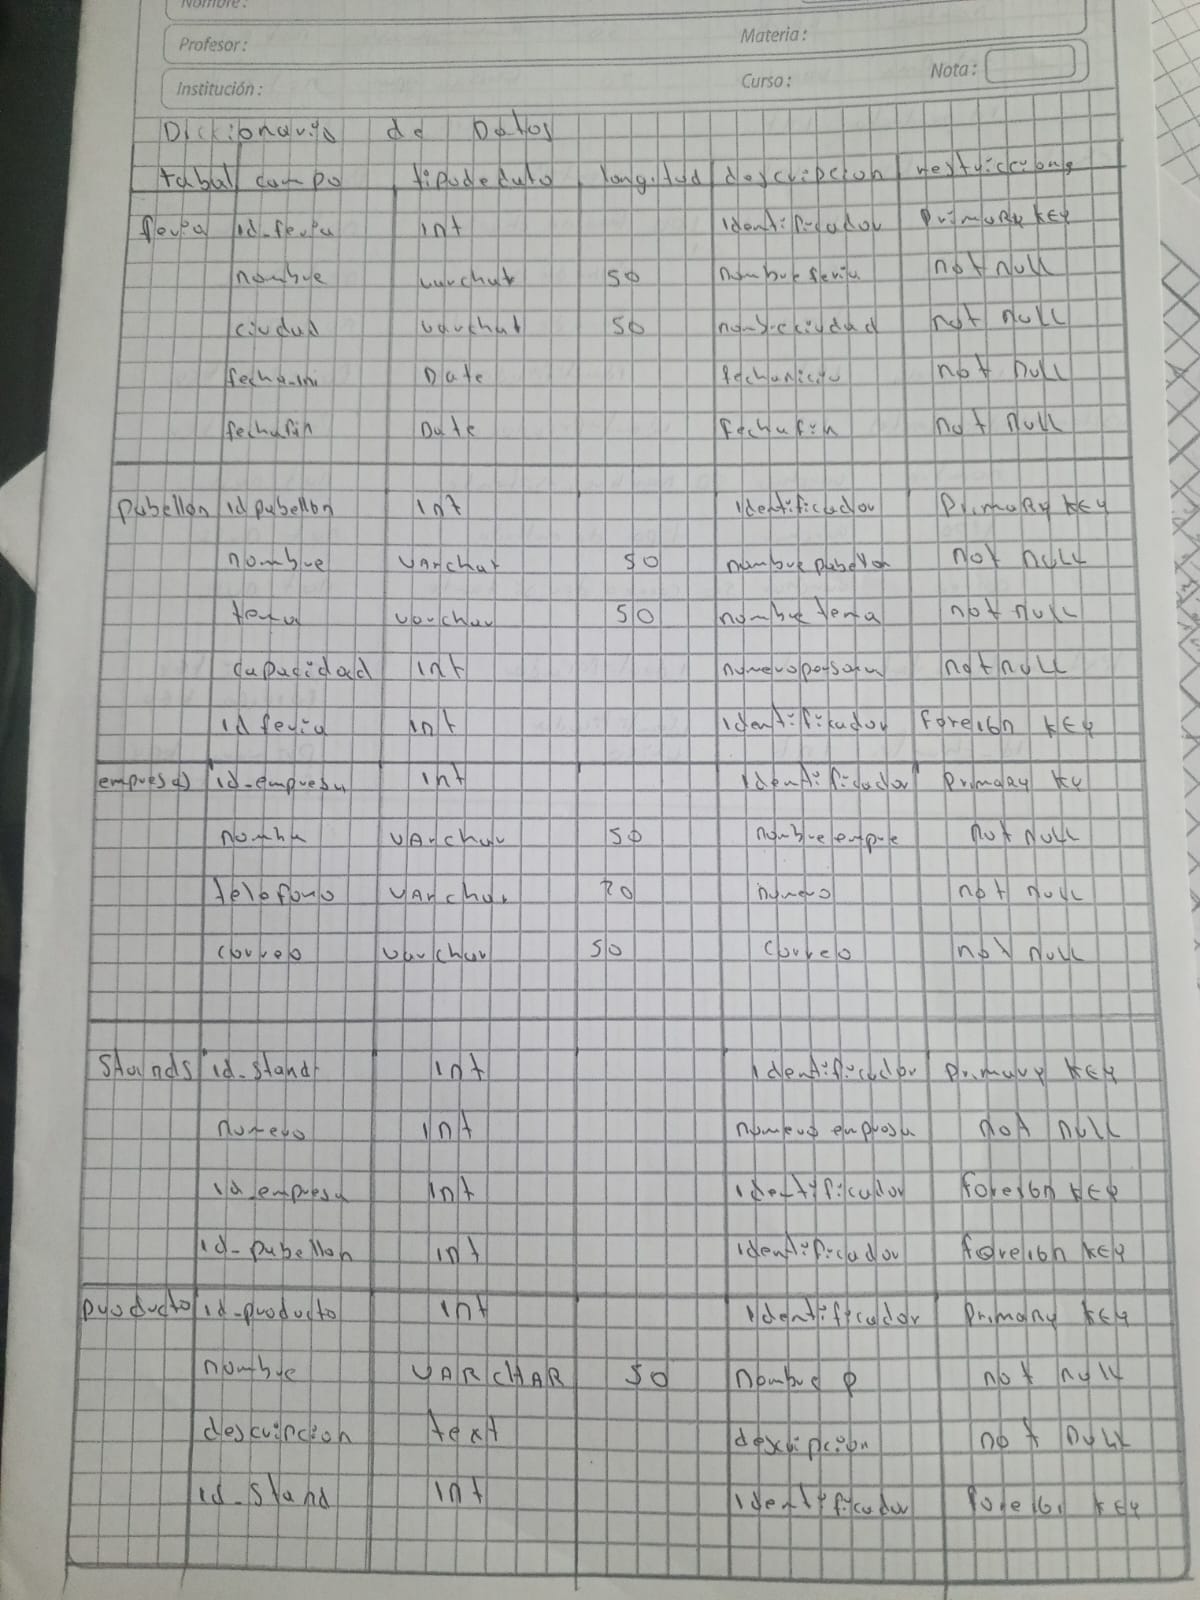 Nombre:
Profesor: Materia:
Institución: Curso: Nota:
Diccionario de Datos
tabal campo tipo de dato longitud descripcion restricciones
feria id_feria int identificador primary KEY
nombre varchar 50 nombre feria not null
ciudad varchar 50 nombreciudad not null
fecha_ini Date fechainicio not null
fechafin Date fechafin not null
pabellon id pabellon int identificador Primary KEY
nombre varchar 50 nombre pabellon not null
tema varchar 50 nombre tema not null
capacidad int numeropersona not null
id feria int identificador foreign KEY
empresa id_empresa int identificador primary KEY
nombre varchar 50 nombre empre not null
telefono varchar 20 numero not null
correo varchar 50 correo not null
Stands id_stand int identificador primary KEY
numero int numero empresa not null
id_empresa int identificador foreign KEY
id_pabellon int identificador foreign KEY
producto id_producto int identificador primary KEY
nombre VARCHAR 50 nombre p not null
descripcion text descripción not null
id_stand int identificador foreign KEY